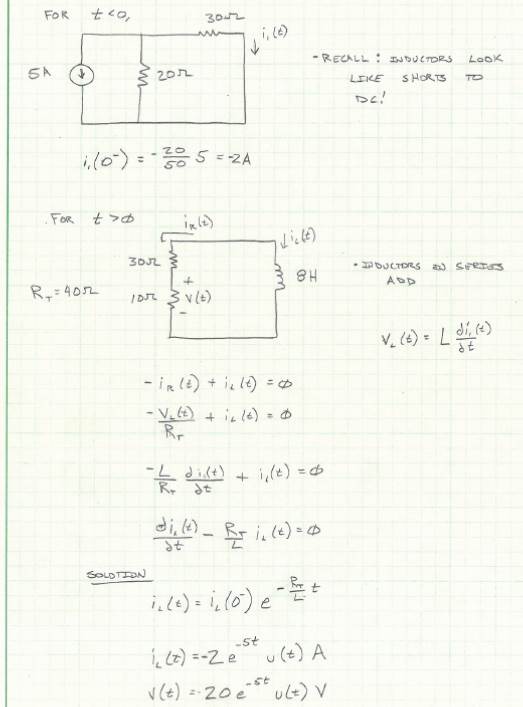 FOR t<0,
30Ω
i₁(t)
5A
20Ω
- RECALL: INDUCTORS LOOK
LIKE SHORTS TO
DC!
i₁(0⁻) = -20/50 5 = -2A
FOR t>φ
i_R(t)
i_L(t)
30Ω
8H
R_T=40Ω
10Ω
+
V(t)
-
• INDUCTORS IN SERIES
ADD
V_L(t) = L di_L(t)/dt
-i_R(t) + i_L(t) = φ
-V_L(t)/R_T + i_L(t) = φ
-L/R_T di_L(t)/dt + i_L(t) = φ
di_L(t)/dt - R_T/L i_L(t) = φ
SOLUTION
i_L(t) = i_L(0⁻) e^(-R_T/L t)
i_L(t) = -2 e^(-5t) u(t) A
V(t) = -20 e^(-5t) u(t) V